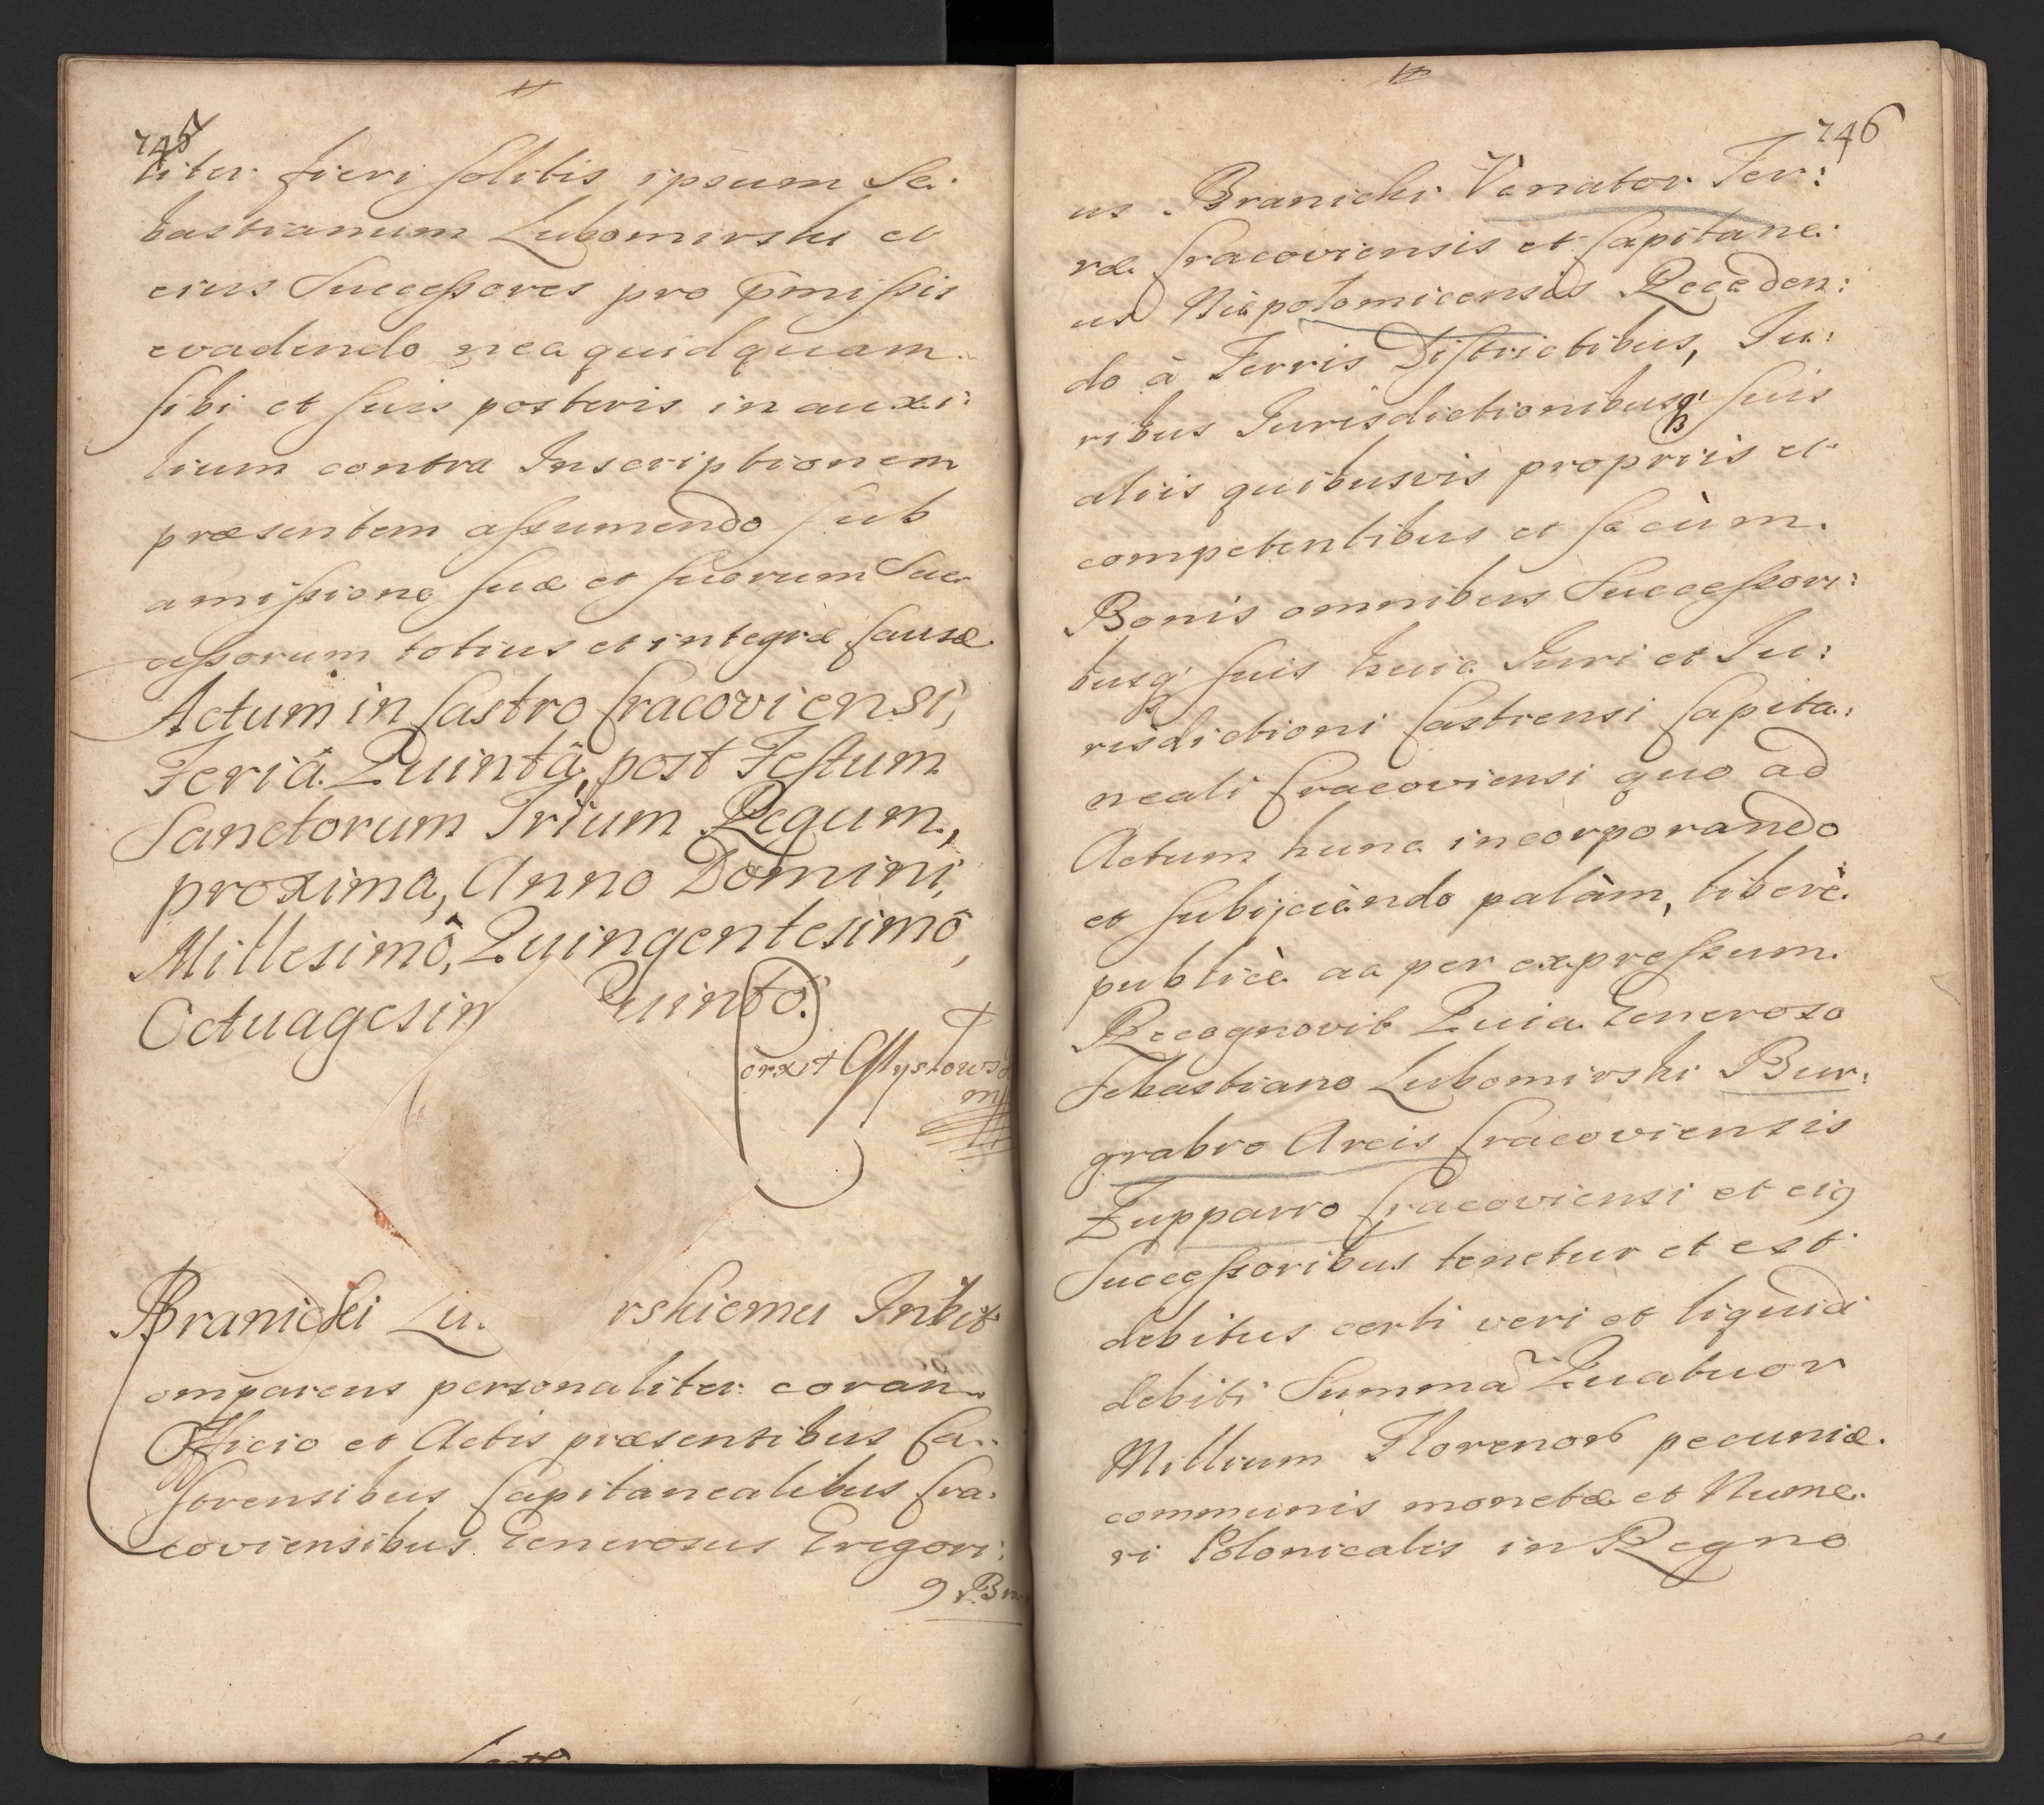 745
liter fieri solitis ipsum Se:
bastianum Lubomirski et
eius Successores pro pmissis
evadendo nec quidquam
sibi et suis posteris in auxi:
lium contra Inscriptionem
præsentem assumendo sub
amissione suæ et suorum Suc
cessorum totius et integræ Causæ
Actum in Castro Cracoviensi,
Feriâ Quintâ, post Festum
Sanctorum Trium Regum,
proxima, Anno Domini,
Millesimô, Quingentesimô,
Octuagesim Quintô.
Branicki Lu rskiemu Inbit
omparens personaliter coram
Officio et Actis præsentibus Ca:
strensibus Capitanealibus Cra:
coviensibus Generosus Gregori:
9 Bra
746
us Branicki Venator Ter:
ræ Cracoviensis et Capitane:
us Niepolomicensis Receden:
do à Terris Districtibus, Ju:
ribus Jurisdictionibusq suis
aliis quibusvis propriis et
competentibus et se cùm
Bonis omnibus Successori:
busq suis huic Juri et Ju:
risdictioni Castrensi Capita:
neali Cracoviensi quo ad
Actum hunc incorporando
et subijciendo palàm, liberè
publicè ac per expressum
Recognovit Quia Generoso
Sebastiano Lubomirski Bur:
grabro Arcis Cracoviensis
Zupparro Cracoviensi et ei9
Successoribus tenetur et est
debitus certi veri et liquidi
debiti Summã Quatuor
Millium Florenor pecuniæ
communis monetæ et Nume:
ri Polonicalis in Regno